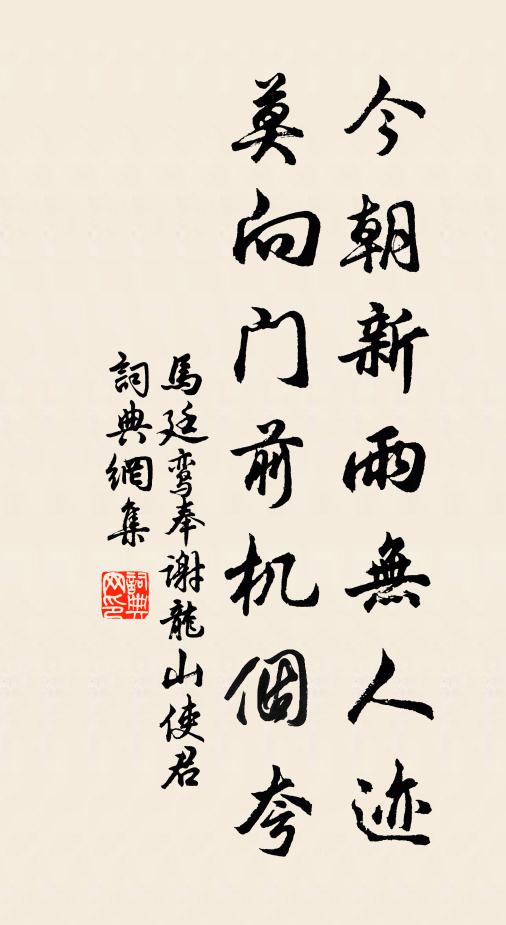 今朝新雨無人迹
莫向門前机個夸
馬廷鸞奉謝龍山使君
詞典網集
詞典网印